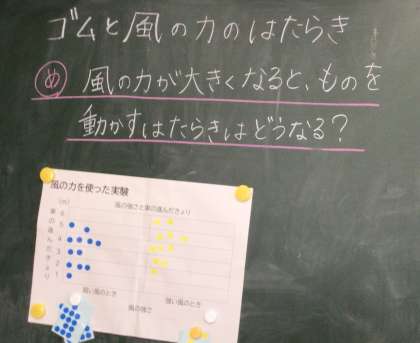 ゴムと風の力のはたらき
め 風の力が大きくなると、ものを
動かすはたらきはどうなる?
風の力を使った実験
風の強さと車の進んだきょり
(m)
6
5
4
3
2
1
車の進んだきょり
弱い風のとき
強い風のとき
風の強さ